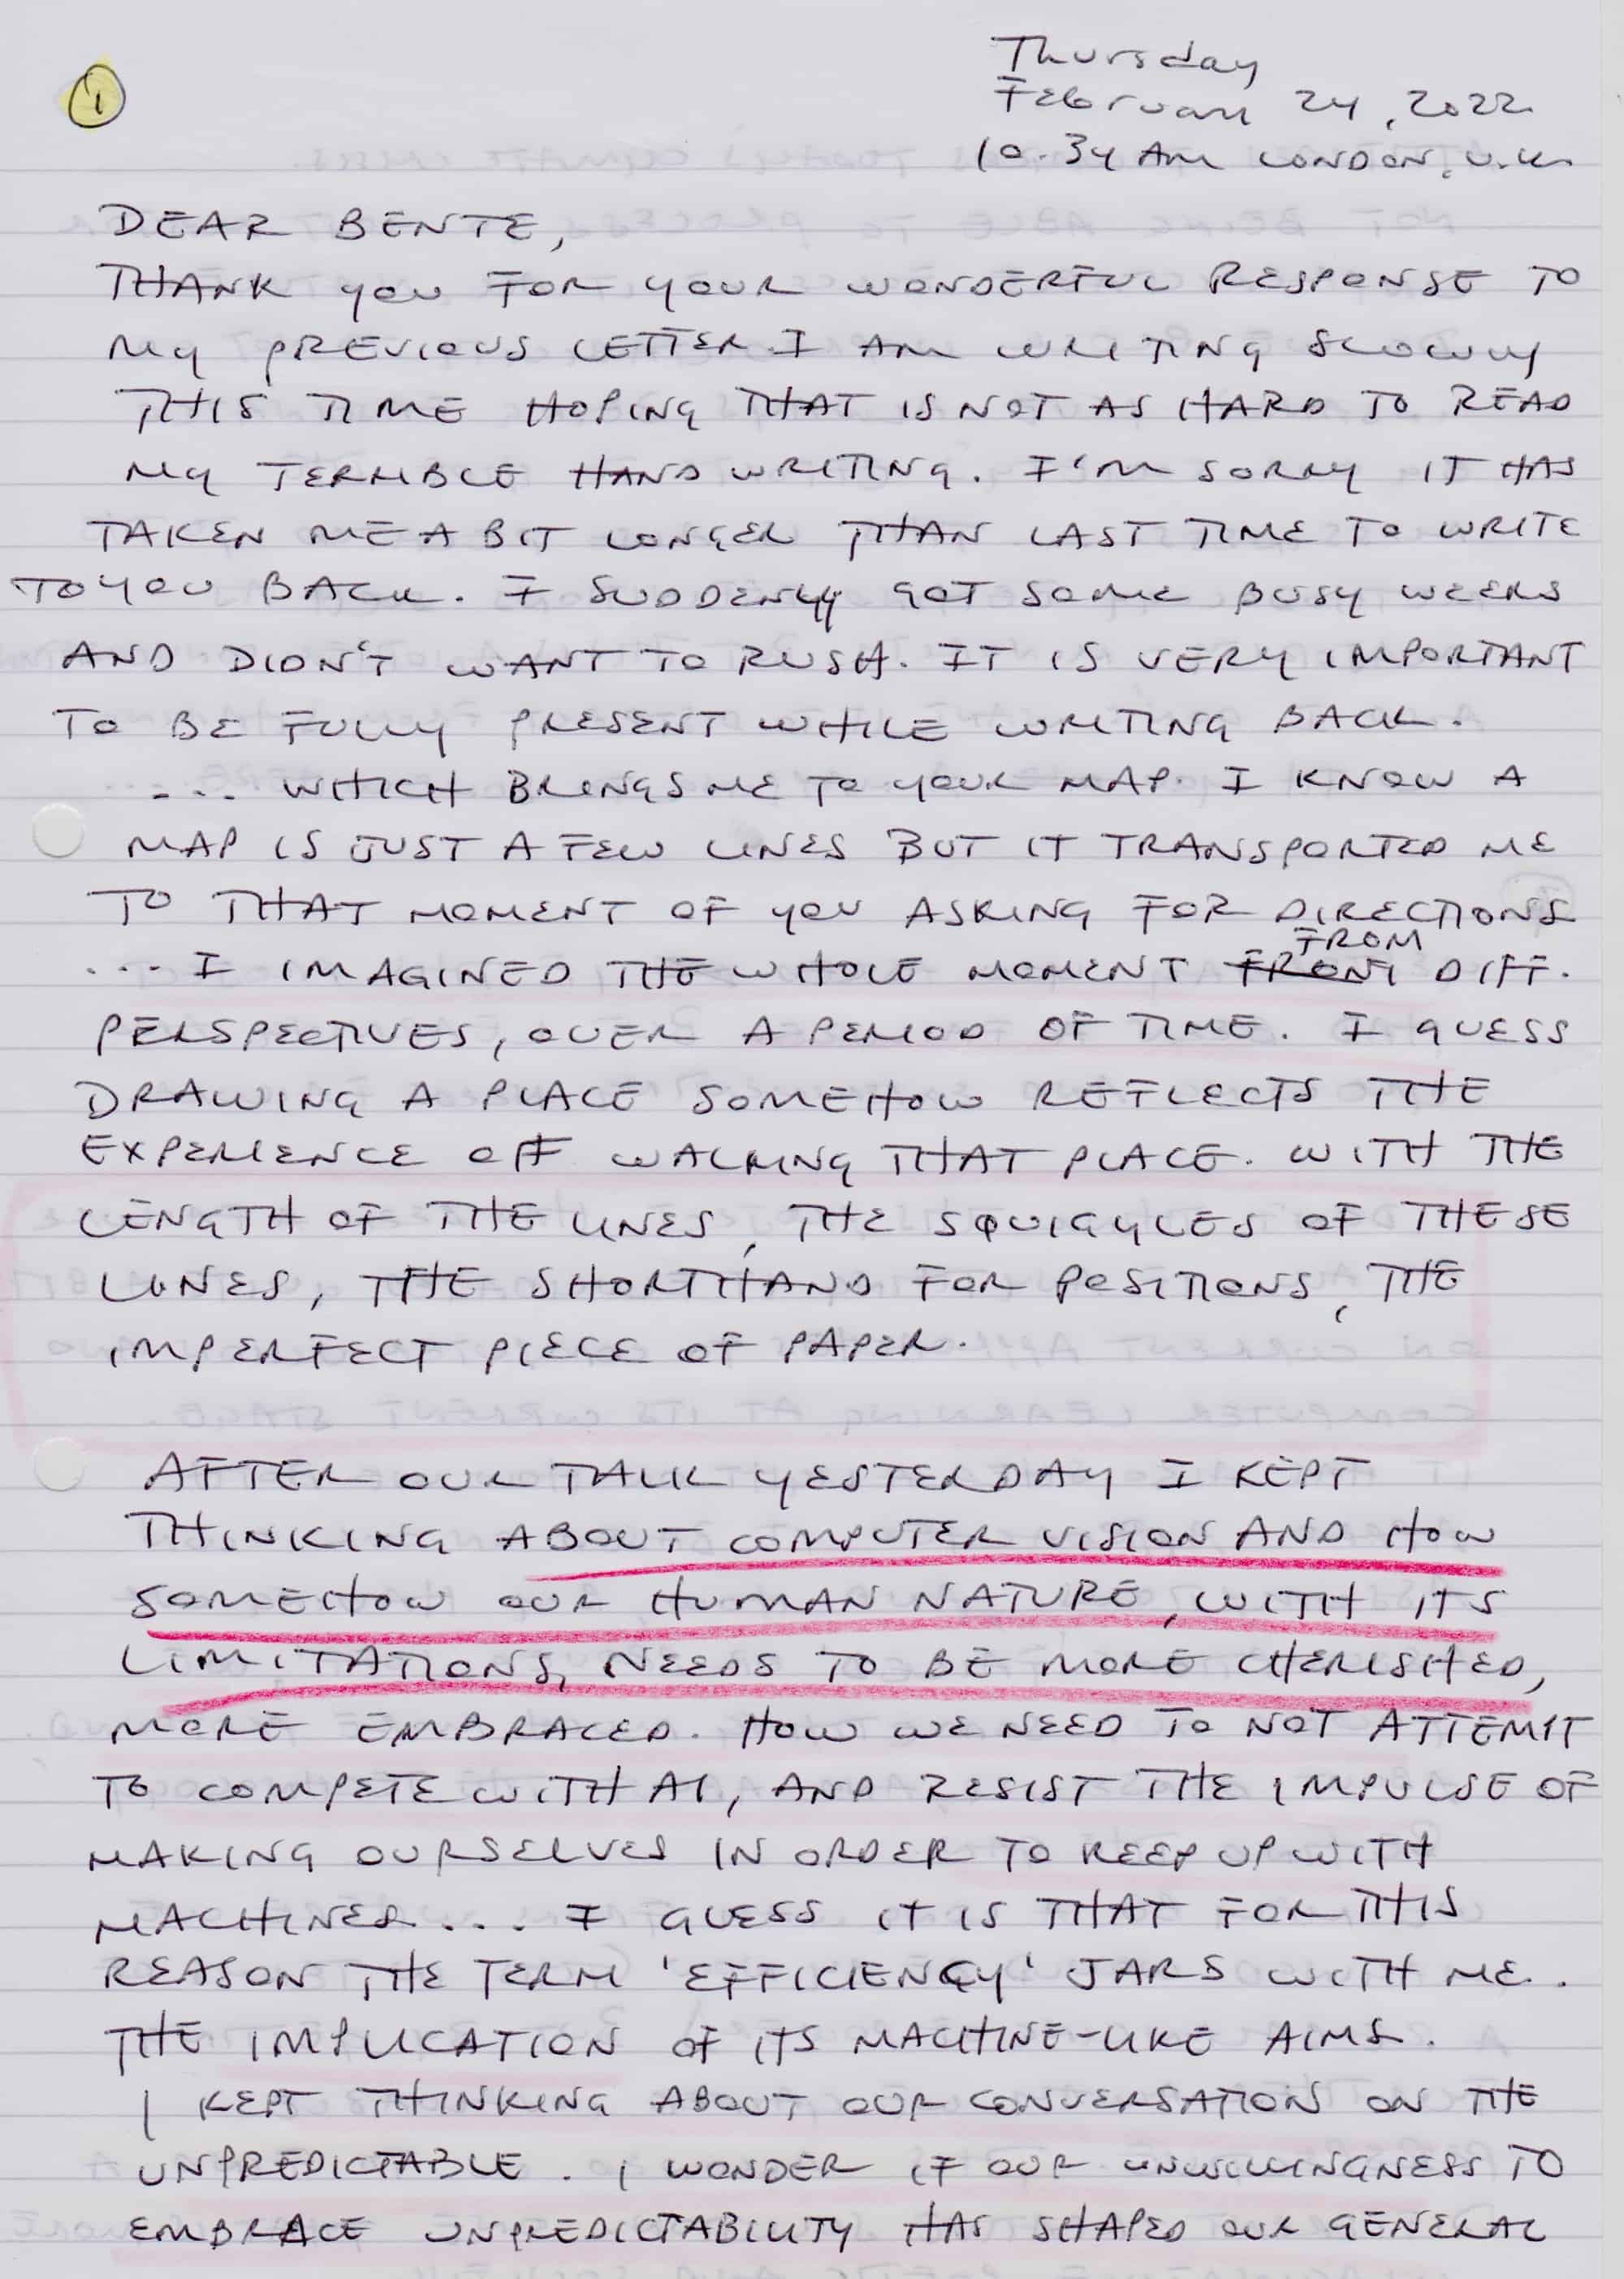 1
Thursday
February 24, 2022
10.34 AM LONDON, U.K.
DEAR BENTE,
THANK YOU FOR YOUR WONDERFUL RESPONSE TO
MY PREVIOUS LETTER. I AM WRITING SLOWLY
THIS TIME HOPING THAT IS NOT AS HARD TO READ
MY TERRIBLE HANDWRITING. I'M SORRY IT HAS
TAKEN ME A BIT LONGER THAN LAST TIME TO WRITE
TO YOU BACK. I SUDDENLY GOT SOME BUSY WEEKS
AND DIDN'T WANT TO RUSH. IT IS VERY IMPORTANT
TO BE FULLY PRESENT WHILE WRITING BACK.
... WHICH BRINGS ME TO YOUR MAP. I KNOW A
MAP IS JUST A FEW LINES BUT IT TRANSPORTED ME
TO THAT MOMENT OF YOU ASKING FOR DIRECTIONS
... I IMAGINED THE WHOLE MOMENT FROM DIFF.
PERSPECTIVES, OVER A PERIOD OF TIME. I GUESS
DRAWING A PLACE SOMEHOW REFLECTS THE
EXPERIENCE OFF WALKING THAT PLACE. WITH THE
LENGTH OF THE LINES, THE SQUIGYLES OF THESE
LINES, THE SHORTHAND FOR POSITIONS, THE
IMPERFECT PIECE OF PAPER.
AFTER OUR TALK YESTERDAY I KEPT
THINKING ABOUT COMPUTER VISION AND HOW
SOMEHOW OUR HUMAN NATURE, WITH ITS
LIMITATIONS, NEEDS TO BE MORE CHERISHED,
MORE EMBRACED. HOW WE NEED TO NOT ATTEMPT
TO COMPETE WITH AI, AND RESIST THE IMPULSE OF
MAKING OURSELVES IN ORDER TO KEEP UP WITH
MACHINES... I GUESS IT IS THAT FOR THIS
REASON THE TERM 'EFFICIENCY' JARS WITH ME.
THE IMPLICATION OF ITS MACHINE-LIKE AIMS.
I KEPT THINKING ABOUT OUR CONVERSATION ON THE
UNPREDICTABLE. I WONDER IF OUR UNWILLINGNESS TO
EMBRACE UNPREDICTABILITY HAS SHAPED OUR GENERAL